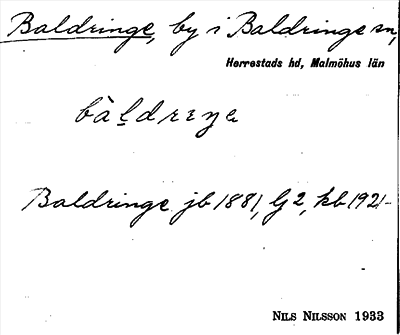 Baldringe, by i Baldringe sn,
Herrestads hd, Malmöhus län
Baldringe jb 1881, G2, kb 1921-
NILS NILSSON 1933